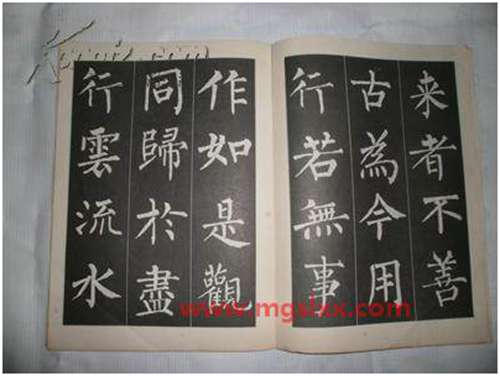 来者不善
古為今用
行若無事
作如是觀
同歸於盡
行雲流水
www.mgslxx.com